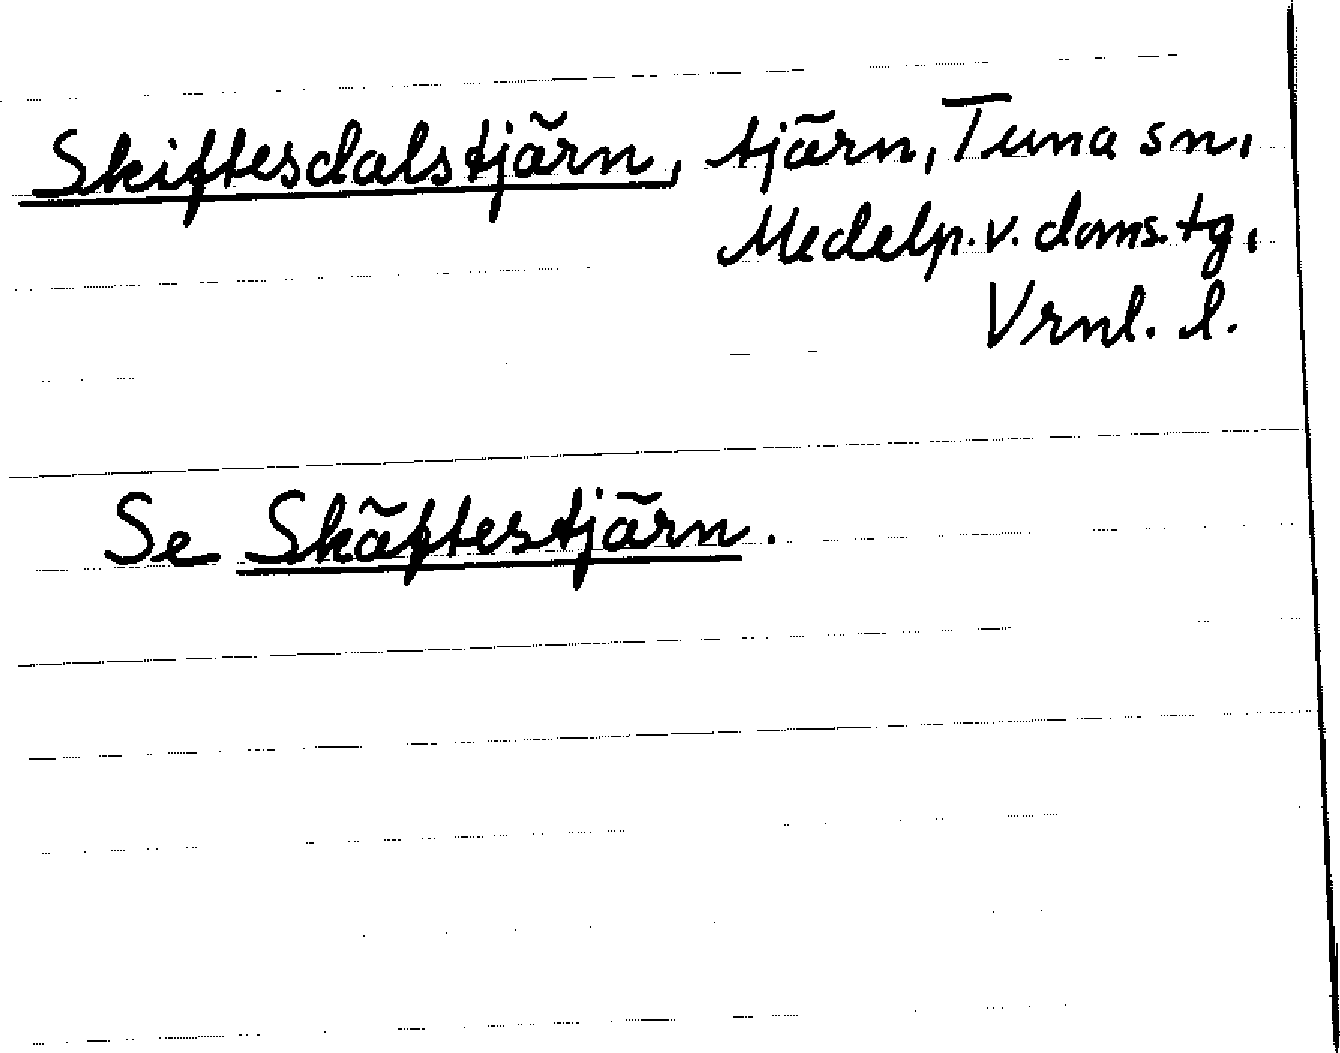 Skiftesdalstjärn, tjärn, Tuna sn,
Medelp. v. doms. tg,
Vrnl. l.
Se Skäftestjärn.